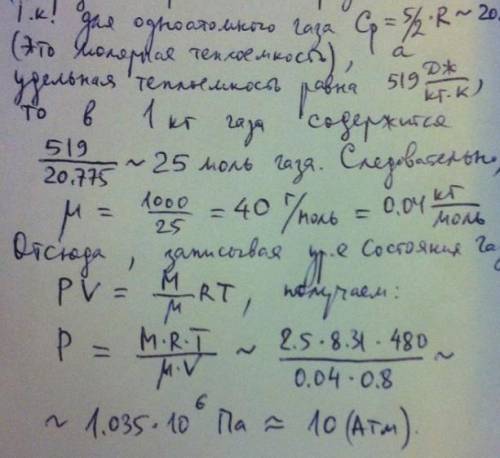 Т.к! для одноатомного газа Cp = 5/2·R ~ 20.
(Это молярная теплоемкость), а
удельная теплоемкость равна 519 Дж/кг·К,
то в 1 кг газа содержится
519/20.775 ~ 25 моль газа. Следовательно,
μ = 1000/25 = 40 г/моль = 0.04 кг/моль
Отсюда, записывая ур.е состояния га
PV = M/μ RT, получаем:
P = M·R·T/μ·V ~ 2.5·8.31·480/0.04·0.8 ~
~ 1.035·10⁶ Па ≈ 10 (Атм).